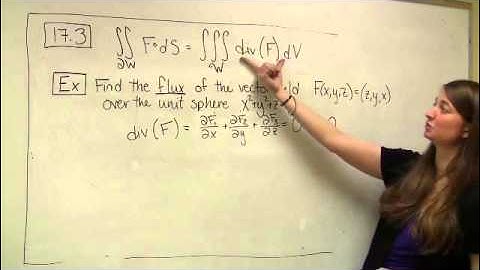 17.3 ∬∂W F•dS = ∭∂W div(F) dV
Ex Find the flux of the vector F(x,y,z)=(z,y,x)
over the unit sphere x²+y²+z²
div(F) = ∂F₁/∂x + ∂F₂/∂y + ∂F₃/∂z =